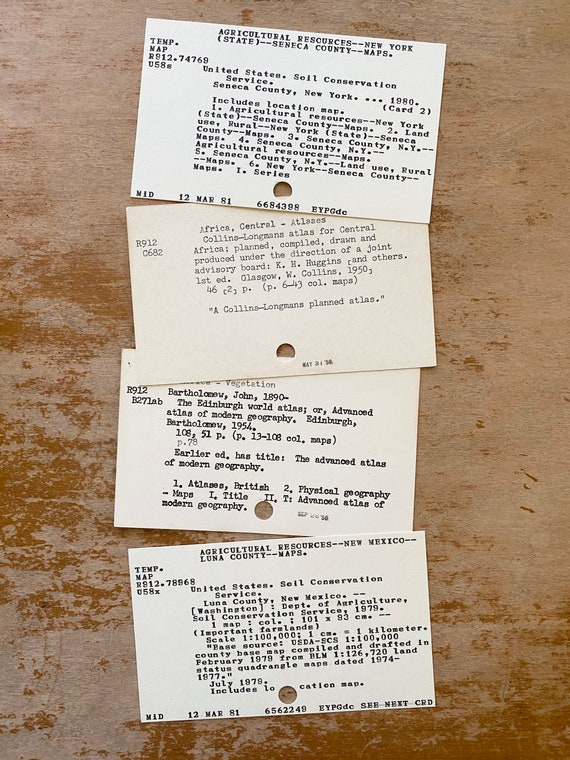 AGRICULTURAL RESOURCES--NEW YORK
(STATE)--SENECA COUNTY--MAPS.
TEMP.
MAP
R912.74769
U58s
United States. Soil Conservation
Service.
Seneca County, New York. ... 1980.
(Card 2)
Includes location map.
1. Agricultural resources--New York
(State)--Seneca County--Maps. 2. Land
use, Rural--New York (State)--Seneca
County--Maps. 3. Seneca County, N.Y.--
Maps. 4. Seneca County, N.Y.--
Agricultural resources--Maps.
5. Seneca County, N.Y.--Land use, Rural
--Maps. 6. New York--Seneca County--
Maps. I. Series
MiD 12 MAR 81 6684398 EYPGdc
Africa, Central - Atlases
R912
C682
Collins-Longmans atlas for Central
Africa: planned, compiled, drawn and
produced under the direction of a joint
advisory board: K. H. Huggins [and others.
1st ed. Glasgow, W. Collins, 1950]
46 [2] p. (p. 6-43 col. maps)
"A Collins-Longmans planned atlas."
MAY 31 '56
- Vegetation
R912
B271ab
Bartholomew, John, 1890-
The Edinburgh world atlas; or, Advanced
atlas of modern geography. Edinburgh,
Bartholomew, 1954.
108, 51 p. (p. 13-108 col. maps)
p.78
Earlier ed. has title: The advanced atlas
of modern geography.
1. Atlases, British 2. Physical geography
- Maps I. Title II. T: Advanced atlas of
modern geography.
SEP '56
AGRICULTURAL RESOURCES--NEW MEXICO--
LUNA COUNTY--MAPS.
TEMP.
MAP
R912.78968
U58x
United States. Soil Conservation
Service.
Luna County, New Mexico. --
[Washington] : Dept. of Agriculture,
Soil Conservation Service, 1979.
1 map : col. ; 101 x 93 cm. --
(Important farmlands)
Scale 1:100,000; 1 cm. = 1 kilometer.
"Base source: USDA-SCS 1:100,000
county base map compiled and drafted in
February 1979 from BLM 1:126,720 land
status quadrangle maps dated 1974-
1977."
July 1979.
Includes lo cation map.
MiD 12 MAR 81 6562249 EYPGdc SEE NEXT CRD